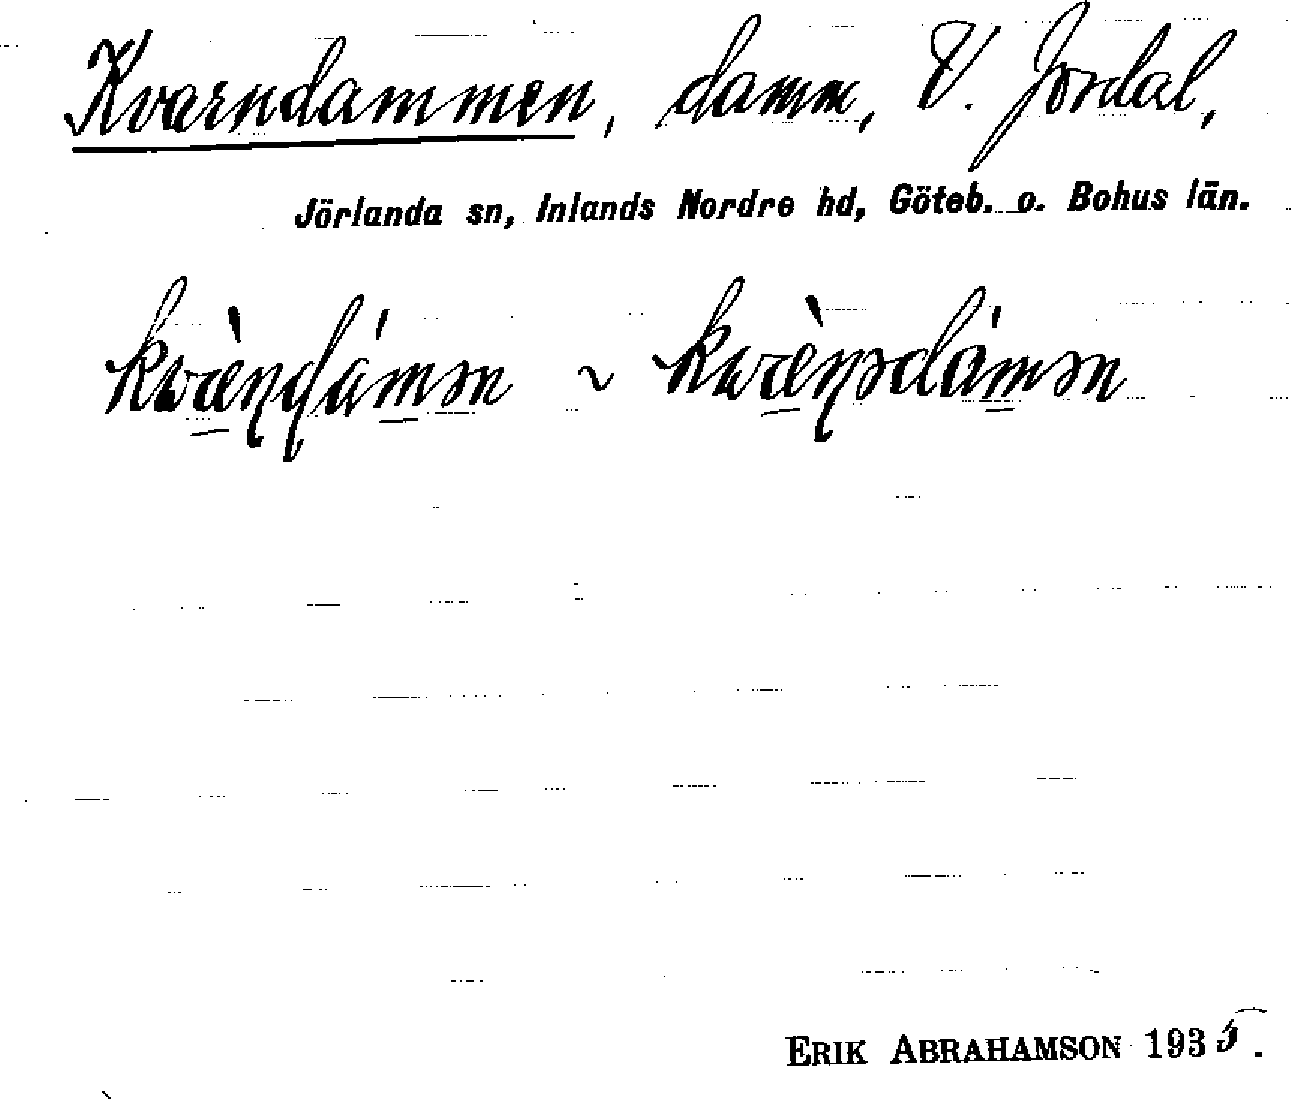 Kvarndammen, damm, V. Jordal,
Jörlanda sn, Inlands Nordre hd, Göteb. o. Bohus län.
kwæ̀ɳɖámən ~ kwæ̀ɳədámən
ERIK ABRAHAMSON 1935.